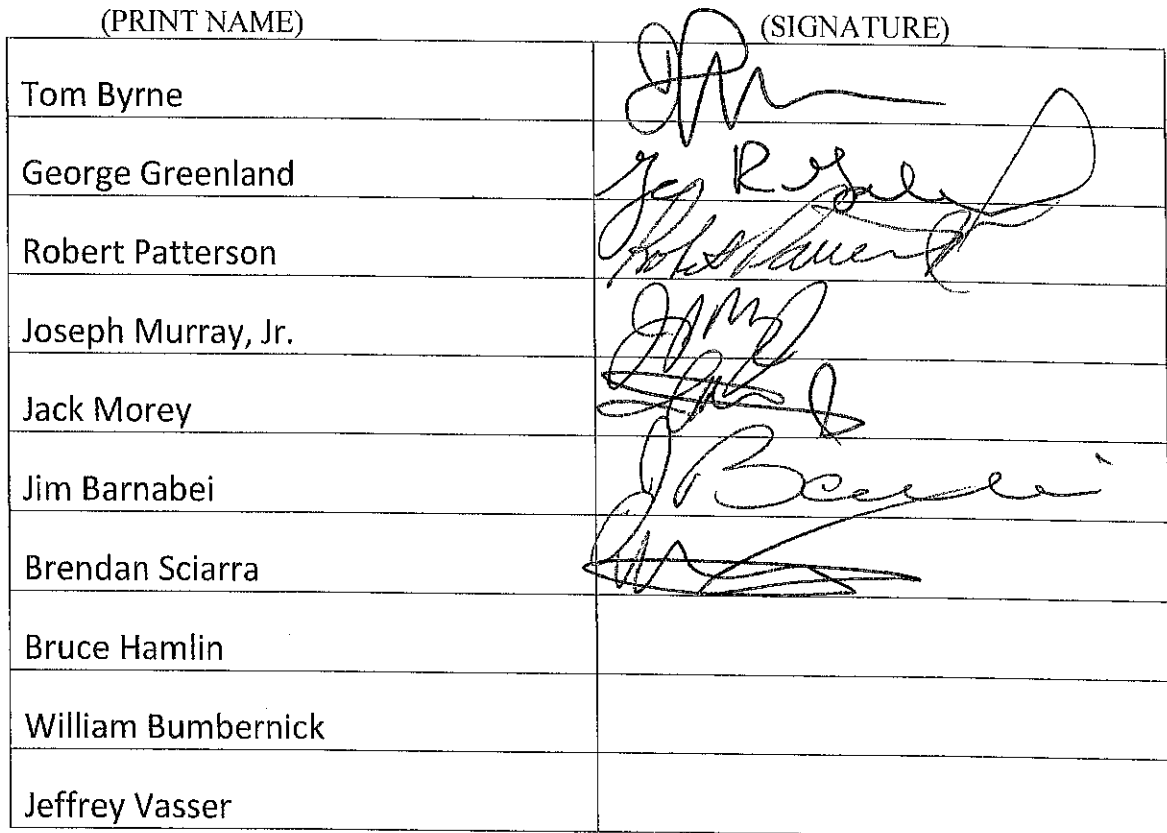 (PRINT NAME) (SIGNATURE)
Tom Byrne
George Greenland
Robert Patterson
Joseph Murray, Jr.
Jack Morey
Jim Barnabei
Brendan Sciarra
Bruce Hamlin
William Bumbernick
Jeffrey Vasser